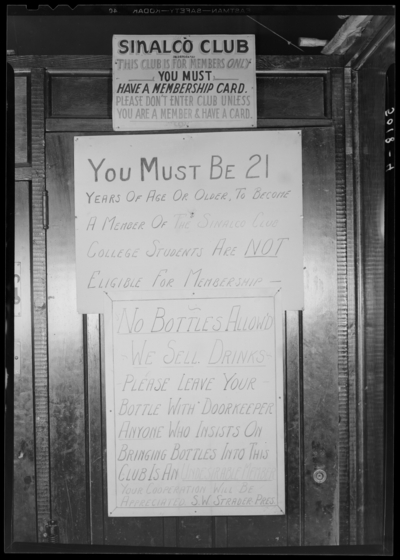 SINALCO CLUB
THIS CLUB IS FOR MEMBERS ONLY
YOU MUST
HAVE A MEMBERSHIP CARD.
PLEASE DON'T ENTER CLUB UNLESS
YOU ARE A MEMBER & HAVE A CARD.
YOU MUST BE 21
YEARS OF AGE OR OLDER, TO BECOME
A MEMBER OF THE SINALCO CLUB
COLLEGE STUDENTS ARE NOT
ELIGIBLE FOR MEMBERSHIP —
NO BOTTLES ALLOWD
-WE SELL DRINKS-
PLEASE LEAVE YOUR -
BOTTLE WITH DOORKEEPER
ANYONE WHO INSISTS ON
BRINGING BOTTLES INTO THIS
CLUB IS AN
YOUR COOPERATION WILL BE
APPRECIATED. S.W. PRES.
5018-4